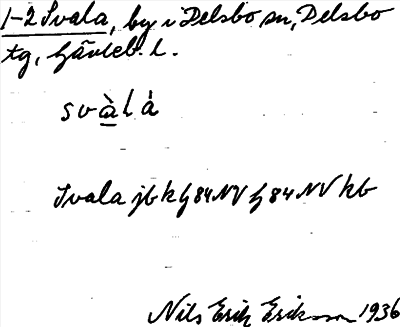 1-2 Svala, by i Delsbo sn, Delsbo
tg, Gävleb. l.
svàlá
Svala jb k G 84 NV G 84 NV kb
Nils Erik Eriksson 1936